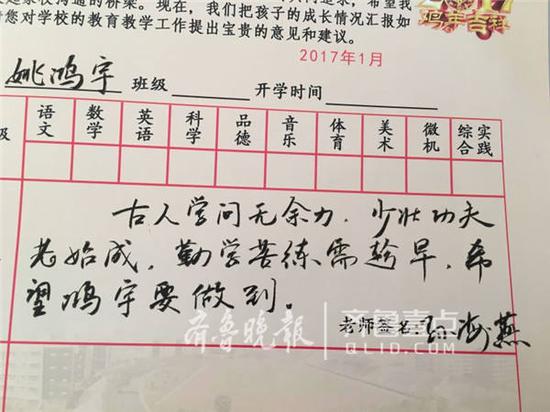 希望
桥梁。现在，我们把孩子的成长情况汇报如
请您对学校的教育教学工作提出宝贵的意见和建议。
鸡年吉祥
2017年1月
姚鸿宇 班级 开学时间
级 语文 数学 英语 科学 品德 音乐 体育 美术 微机 综合实践
古人学问无余力，少壮功夫
老始成，勤学苦练需趁早，希
望鸿宇要做到。
老师签名 海燕
齐鲁晚报 齐鲁壹点
QLID.COM